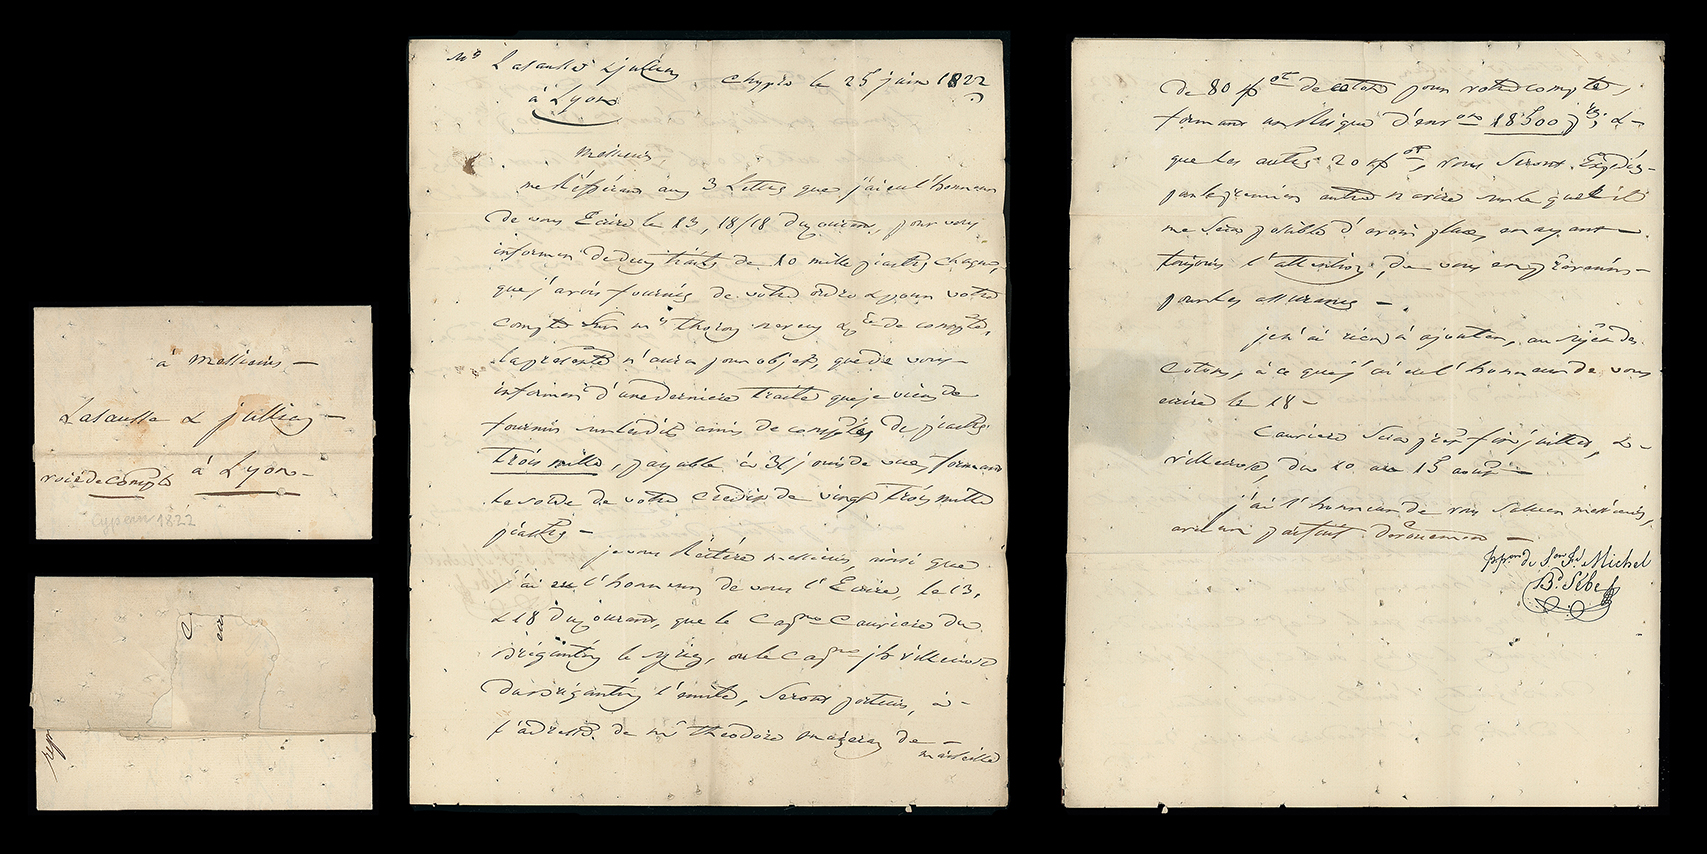 à Messieurs
Lasausse & Jullien
à Lyon
voie de compte
Cypern 1822
Mrs Lasausse & Jullien
Chypre le 25 juin 1822
à Lyon
Messieurs
me Référant aux 3 Lettres que j'ai eu l'honneur
de vous Ecrire le 13, 18/18 du courant, pour vous
informer de deux traites de 10 mille piastres chaque,
que j'avois fournies de votre ordre & pour votre
compte sur mrs neveu & de compte,
la présente n'aura pour objet, que de vous
informer d'une derniere traite que je viens de
fournir sur lesdits amis de de piastres
trois mille, payable à 31 jours de vue, formant
le solde de votre Crédit de vingt trois mille
piastres
je vous Réitère messieurs, ainsi que
j'ai eu l'honneur de vous l'Ecrire, le 13,
& 18 du courant, que le Capne Cauviere du
brigantin le , ou le Capne jh villecrose
du brigantin l'emile, seront porteurs, à
l'adresse de mr théodore de
marseille
de 80 de coton pour votre compte,
formant un Risque d'envon 18500 &
que les autres 20 , vous seront Expédiés
par le premier autre navire sur lequel il
me sera possible d'avoir place, en ayant
toujours l'attention, de vous en prévenir
pour les assurances
je n'ai rien à ajouter, au sujet des
Cotons, à ce que j'ai eu l'honneur de vous
écrire le 18
Cauviere sera prêt fin juillet, &
villecrose, du 10 au 15 aoust
j'ai l'honneur de vous saluer messieurs,
avec un parfait dévouement
de Michel